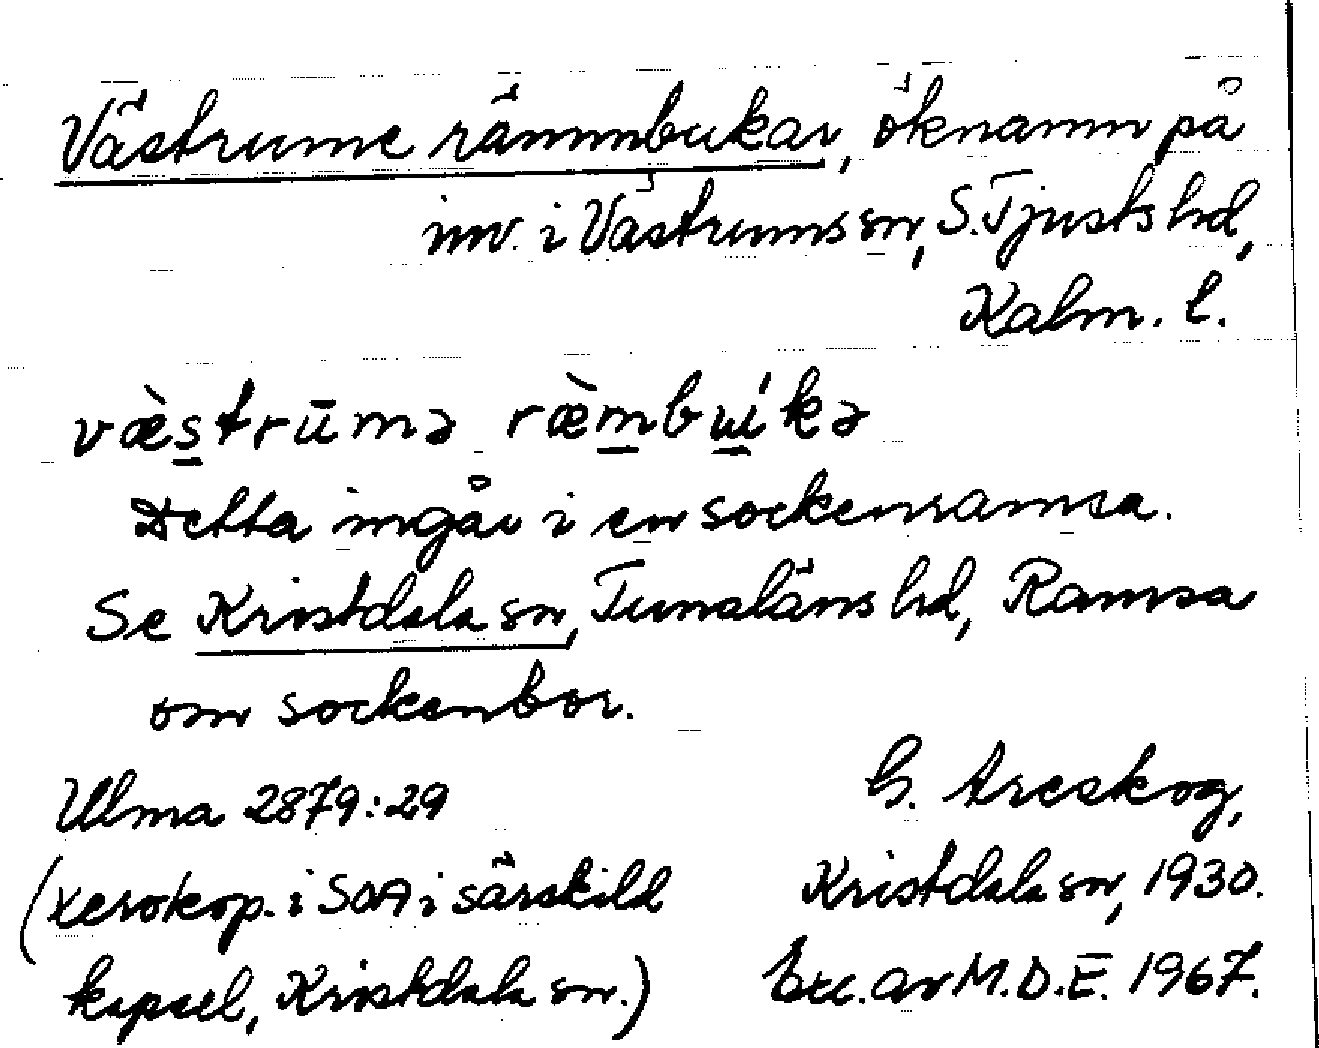 Västrume rämmbukar, öknamn på
inv. i Västrums sn, S. Tjusts hd,
Kalm. l.
væ̀strūmə ræ̀mbuíkə
Detta ingår i en sockenramsa.
Se Kristdala sn, Tunaläns hd, Ramsa
om sockenbor.
Ulma 2879:29 G. Areskog,
(xerokop. i SOA i särskild Kristdala sn, 1930.
kapsel, Kristdala sn.) Exc. av M.D.E. 1967.